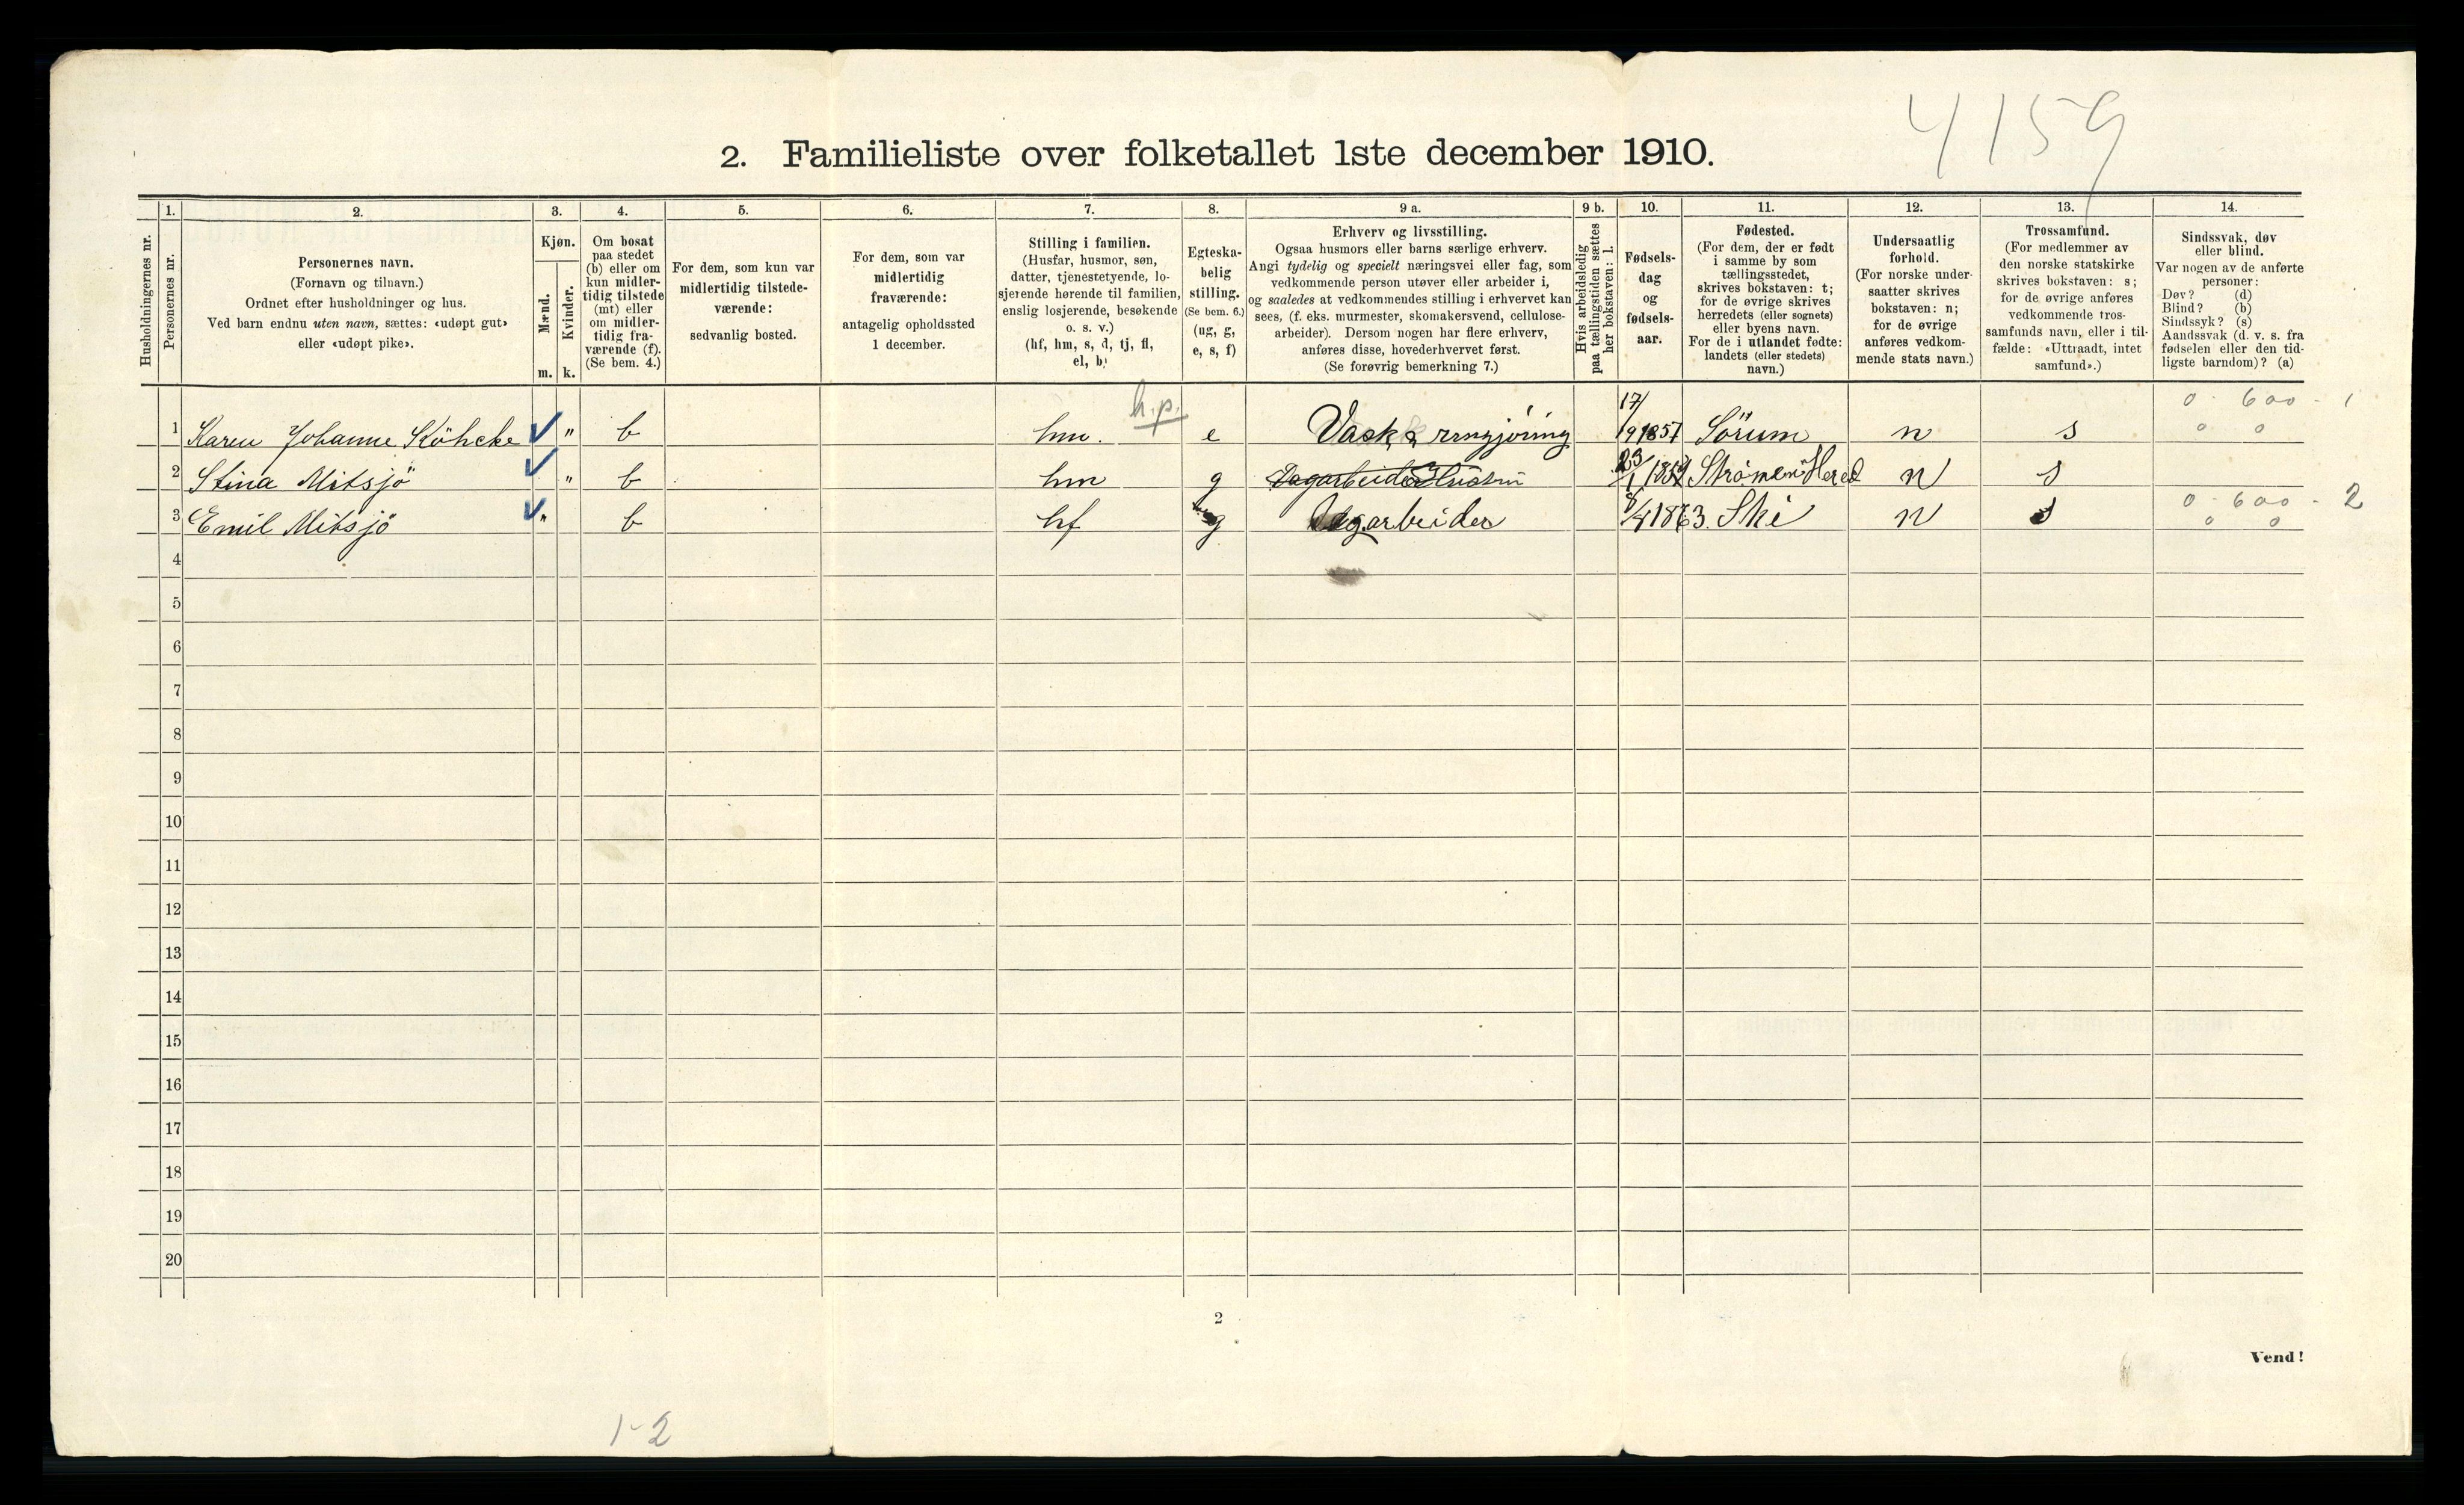 4159
2. Familieliste over folketallet 1ste december 1910.
Husholdningernes nr.
1.
Personernes nr.
2.
Personernes navn.
(Fornavn og tilnavn.)
Ordnet efter husholdninger og hus.
Ved barn endnu uten navn, sættes: «udøpt gut»
eller «udøpt pike».
3.
Kjøn.
Mænd.
Kvinder.
m. k.
4.
Om bosat
paa stedet
(b) eller om
kun midler-
tidig tilstede
(mt) eller
om midler-
tidig fra-
værende (f).
(Se bem. 4.)
5.
For dem, som kun var
midlertidig tilstede-
værende:
sedvanlig bosted.
6.
For dem, som var
midlertidig
fraværende:
antagelig opholdssted
1 december.
7.
Stilling i familien.
(Husfar, husmor, søn,
datter, tjenestetyende, lo-
sjerende hørende til familien,
enslig losjerende, besøkende
o. s. v.)
(hf, hm, s, d, tj, fl,
el, b)
8.
Egteska-
belig
stilling.
(Se bem. 6.)
(ug, g,
e, s, f)
9 a.
Erhverv og livsstilling.
Ogsaa husmors eller barns særlige erhverv.
Angi tydelig og specielt næringsvei eller fag, som
vedkommende person utøver eller arbeider i,
og saaledes at vedkommendes stilling i erhvervet kan
sees, (f. eks. murmester, skomakersvend, cellulose-
arbeider). Dersom nogen har flere erhverv,
anføres disse, hovederhvervet først.
(Se forøvrig bemerkning 7.)
9 b.
Hvis arbeidsledig
paa tællingstiden sættes
her bokstaven: l.
10.
Fødsels-
dag
og
fødsels-
aar.
11.
Fødested.
(For dem, der er født
i samme by som
tællingsstedet,
skrives bokstaven: t;
for de øvrige skrives
herredets (eller sognets)
eller byens navn.
For de i utlandet fødte:
landets (eller stedets)
navn.)
12.
Undersaatlig
forhold.
(For norske under-
saatter skrives
bokstaven: n;
for de øvrige
anføres vedkom-
mende stats navn.)
13.
Trossamfund.
(For medlemmer av
den norske statskirke
skrives bokstaven: s;
for de øvrige anføres
vedkommende tros-
samfunds navn, eller i til-
fælde: «Uttraadt, intet
samfund».)
14.
Sindssvak, døv
eller blind.
Var nogen av de anførte
personer:
Døv? (d)
Blind? (b)
Sindssyk? (s)
Aandssvak (d. v. s. fra
fødselen eller den tid-
ligste barndom)? (a)
h.p. 0 - 600 - 1
1 Karen Johanne Köhcke " b hm. e Vask & rengjøring 17/9 1857 Sörum n s 0 0
2 Stina Mitsjö " b hm g Dagarbeider Hustru 23/1 Strömen Hered n s
0 - 600 - 2
3 Emil Mitsjö " b hf g Dagarbeider 8/4 1863. Ski n s 0 0
4
5
6
7
8
9
10
11
12
13
14
15
16
17
18
19
20
2
Vend!
1-2